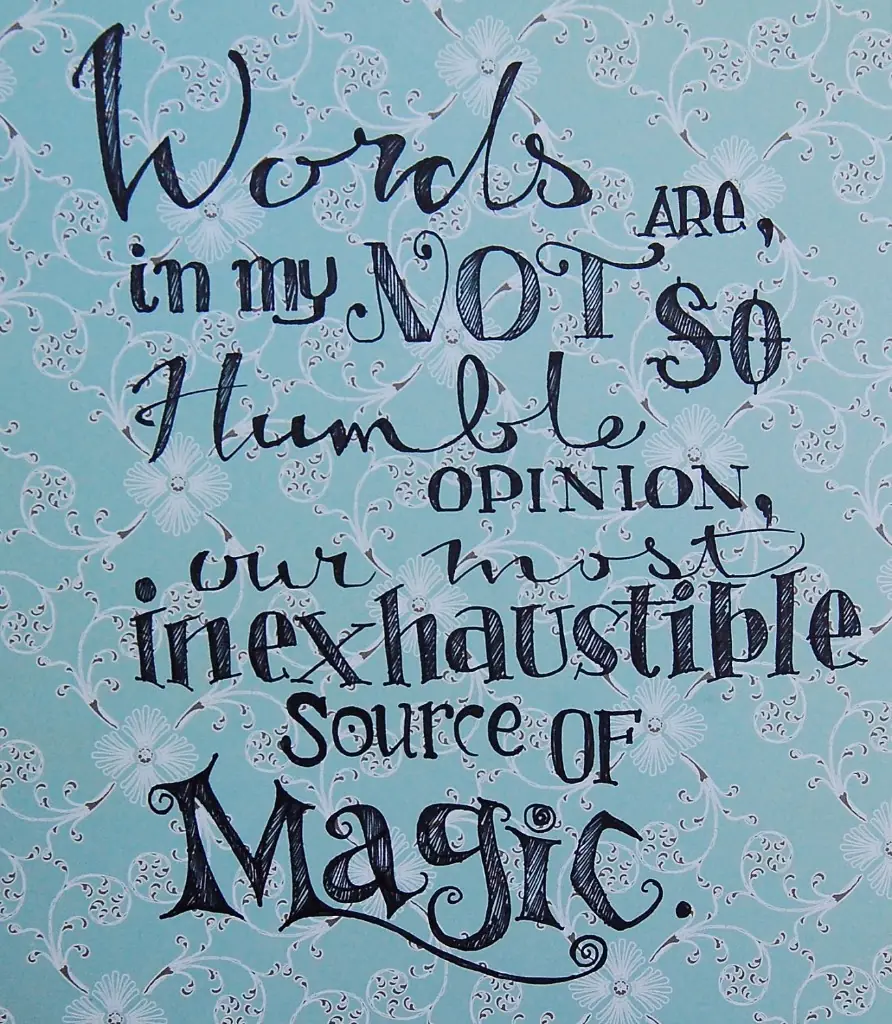 Words
ARe,
in my NOT
SO
Humble
OPINION,
our most
inexhaustible
source OF
Magic.